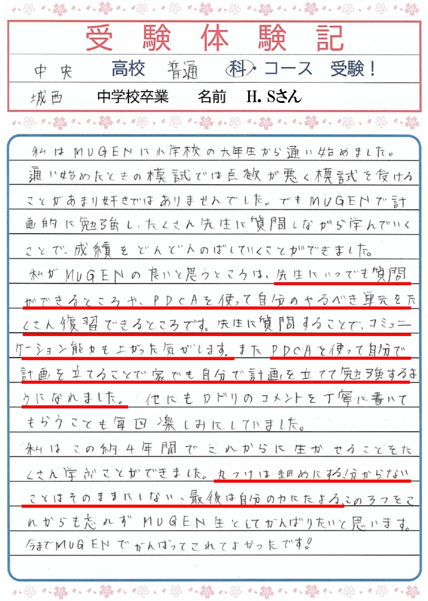 受験体験記
中央 高校 普通 科・コース 受験！
城西 中学校卒業 名前 H.Sさん
私はMUGENに小学校の六年生から通い始めました。
通い始めたときの模試では点数が悪く模試を受ける
ことがあまり好きではありませんでした。でもMUGENで計
画的に勉強し、たくさん先生に質問しながら学んでいく
ことで、成績をどんどんのばしていくことができました。
私がMUGENの良いと思うところは、先生にいつでも質問
ができるところや、PDCAを使って自分のやるべき単元をた
くさん復習できるところです。先生に質問することで、コミュニ
ケーション能力も上がった気がします。またPDCAを使って自分で
計画を立てることで家でも自分で計画を立てて勉強するよ
うになれました。他にもDドリのコメントを丁寧に書いて
もらうことも毎回楽しみにしていました。
私はこの約4年間でこれからに生かせることをた
くさん学ぶことができました。丸つけは細めにする！分からない
ことはそのままにしない、最後は自分の力にたよるこの3つをこ
れからも忘れずMUGEN生としてがんばりたいと思います。
今までMUGENでがんばってこれてよかったです！